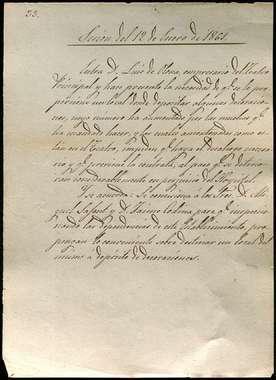 33.
Sesion del 12 de Enero de 1861.
Entra D. Luis de Olona, empresario del Teatro
Principal y hace presente la necesidad de q.e se le pro-
porcione un local donde depositar algunas decoracio-
nes, cuyo numero ha aumentado por las muchas q.e
ha mandado hacer, y las cuales amontonadas como es-
tán en el Teatro, impiden q.e haya el desahogo necesa-
rio y q.e conviene la custodia, al paso q.e se deterio-
ran considerablemente en perjuicio del Hospital.
Y se acuerda: Se comisiona a los Sres. D. Mi-
guel Safont y D. Jaime Codina para q.e inspeccio-
nando las dependencias de este Establecimiento, pro-
pongan lo conveniente sobre destinar un local del
mismo á depósito de decoraciones.